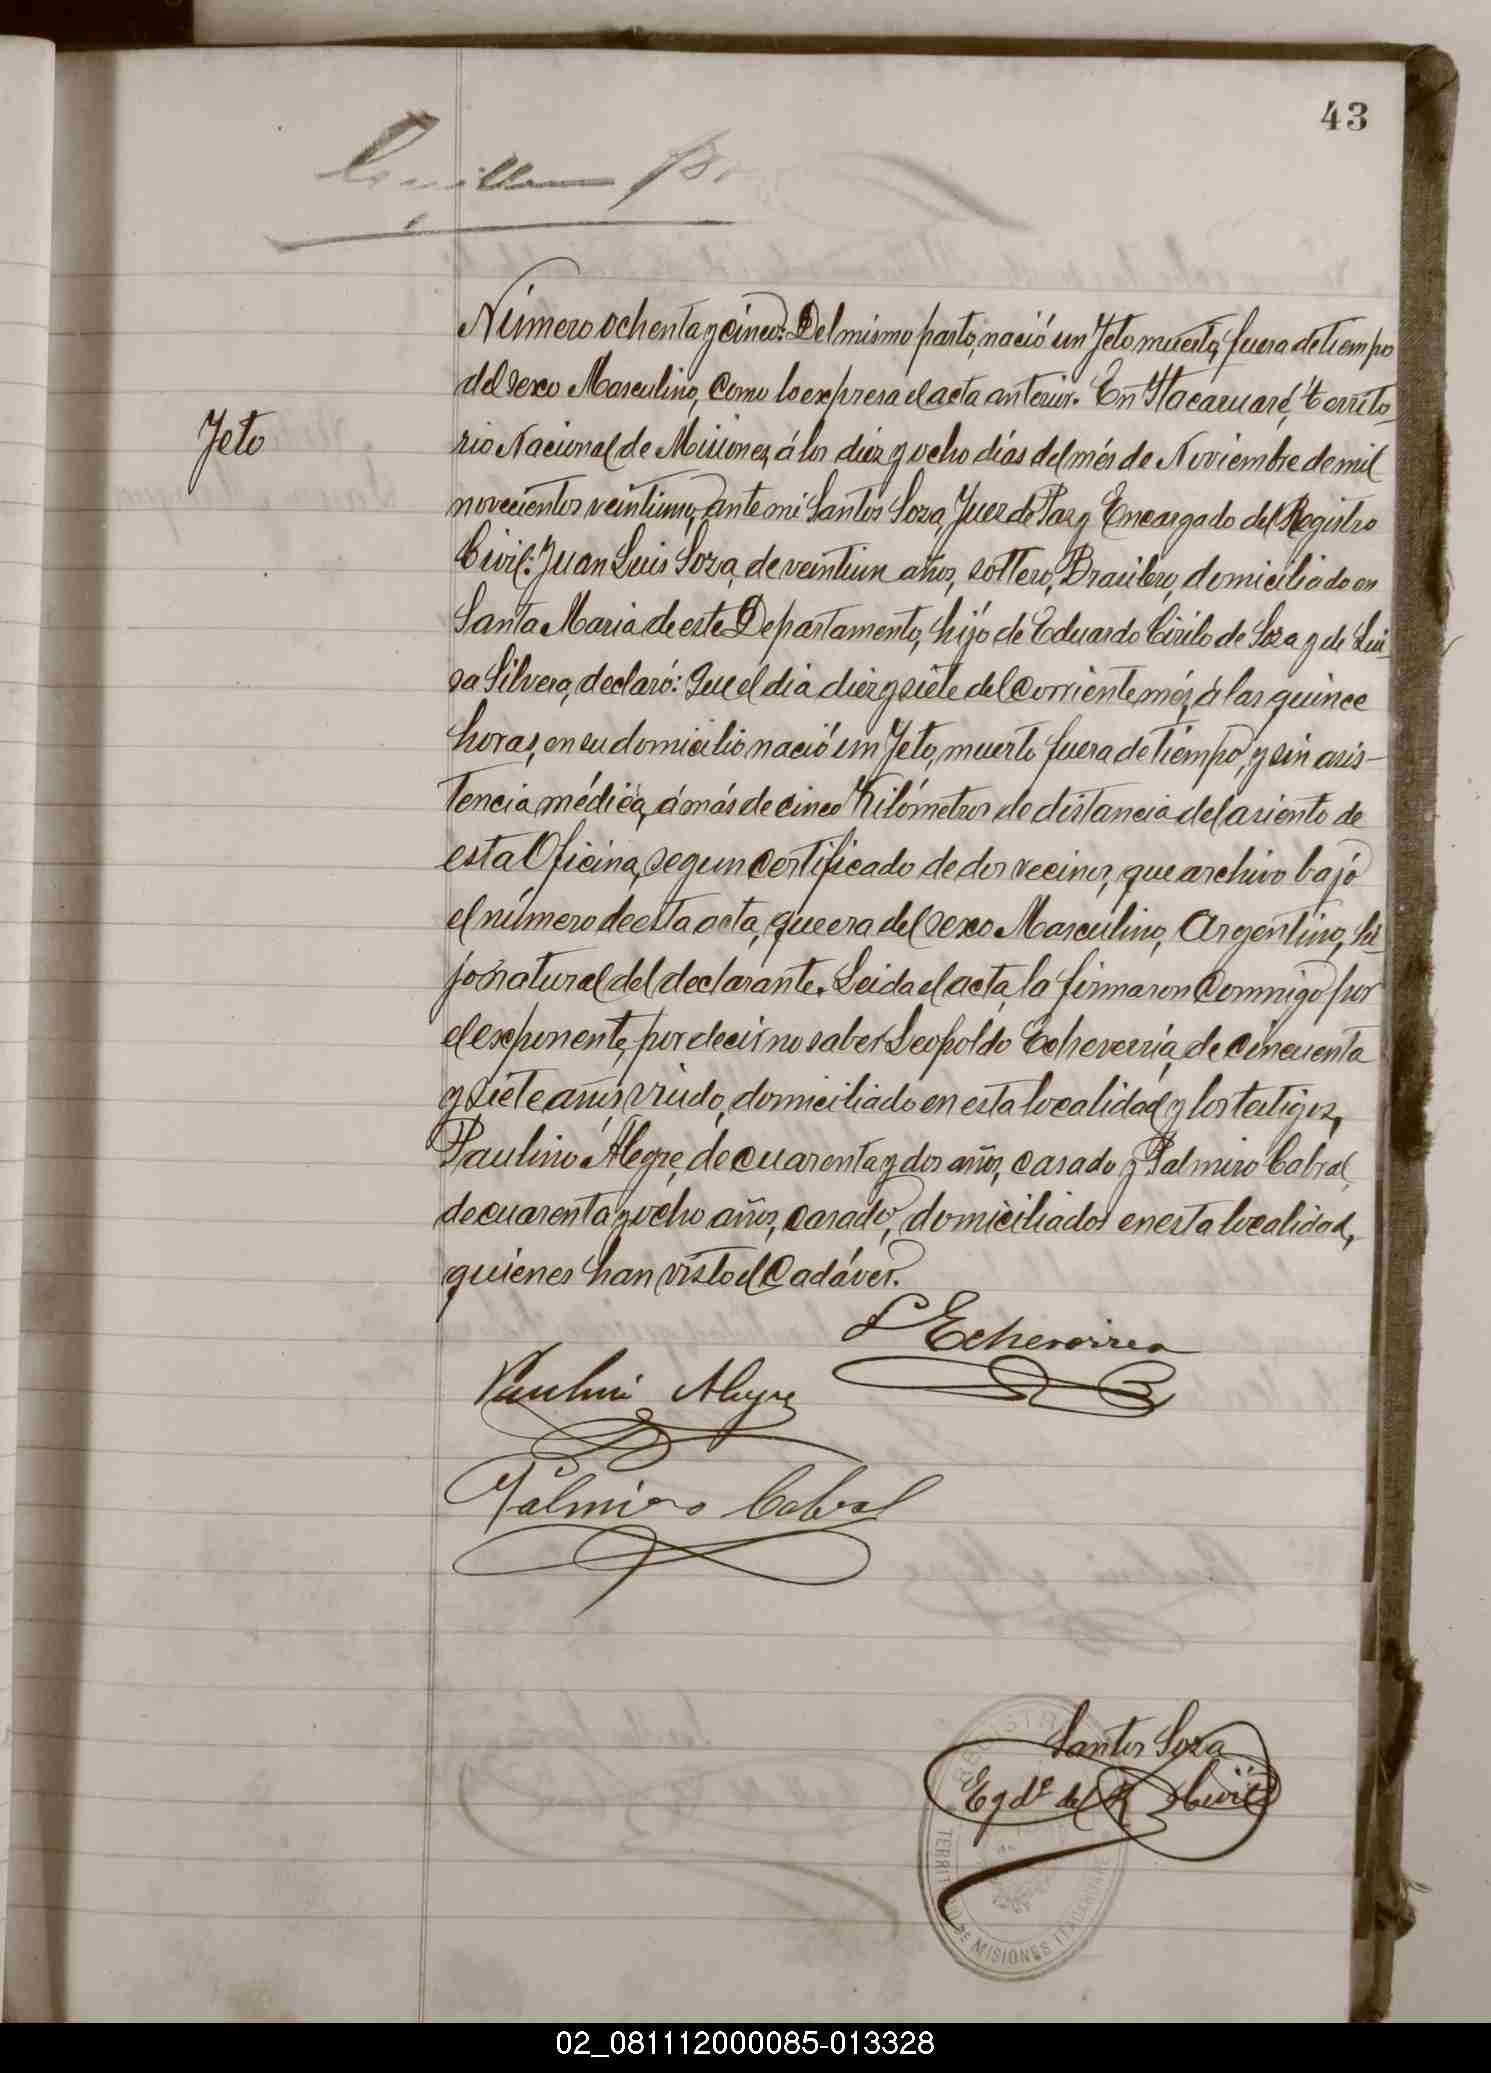 43
Número ochenta y cinco: Del mismo parto, nació un feto muerto, fuera de tiempo
del sexo Masculino, como lo expresa el acta anterior. En Itacaruaré, Territo-
Feto
rio Nacional de Misiones, á los diez y ocho días del més de Noviembre de mil
novecientos veintiuno, ante mi Santos Soza, Juez de Paz y Encargado del Registro
Civil: Juan Luis Soza, de veintiun años, soltero, Brasilero, domiciliado en
Santa Maria de este Departamento, hijo de Eduardo Cirilo de Soza y de Lui-
sa Silvera, declaró: Que el dia diez y siete del corriente més, á las quince
horas, en su domicilio nació un feto, muerto fuera de tiempo, y sin asis-
tencia médica, á más de cinco Kilómetros de distancia del asiento de
esta Oficina, segun certificado de dos vecinos, que archivo bajo
el número de esta acta, que era del sexo Masculino, Argentino, hi-
jo natural del declarante. Leida el acta, la firmaron conmigo por
el exponente, por decir no saber Leopoldo Echeverria, de cincuenta
y siete años, viudo, domiciliado en esta localidad y los testigos,
Paulino Alegre, de cuarenta y dos años, casado y Palmiro Cabral,
de cuarenta y ocho años, casado, domiciliados en esta localidad,
quienes han visto el cadáver.
L Echeverria
Paulino Alegre
Palmiro Cabral
Santos Soza
Egdo del R Civil
REGISTRO
TERRITORIO DE MISIONES ITACARUARE
02_081112000085-013328